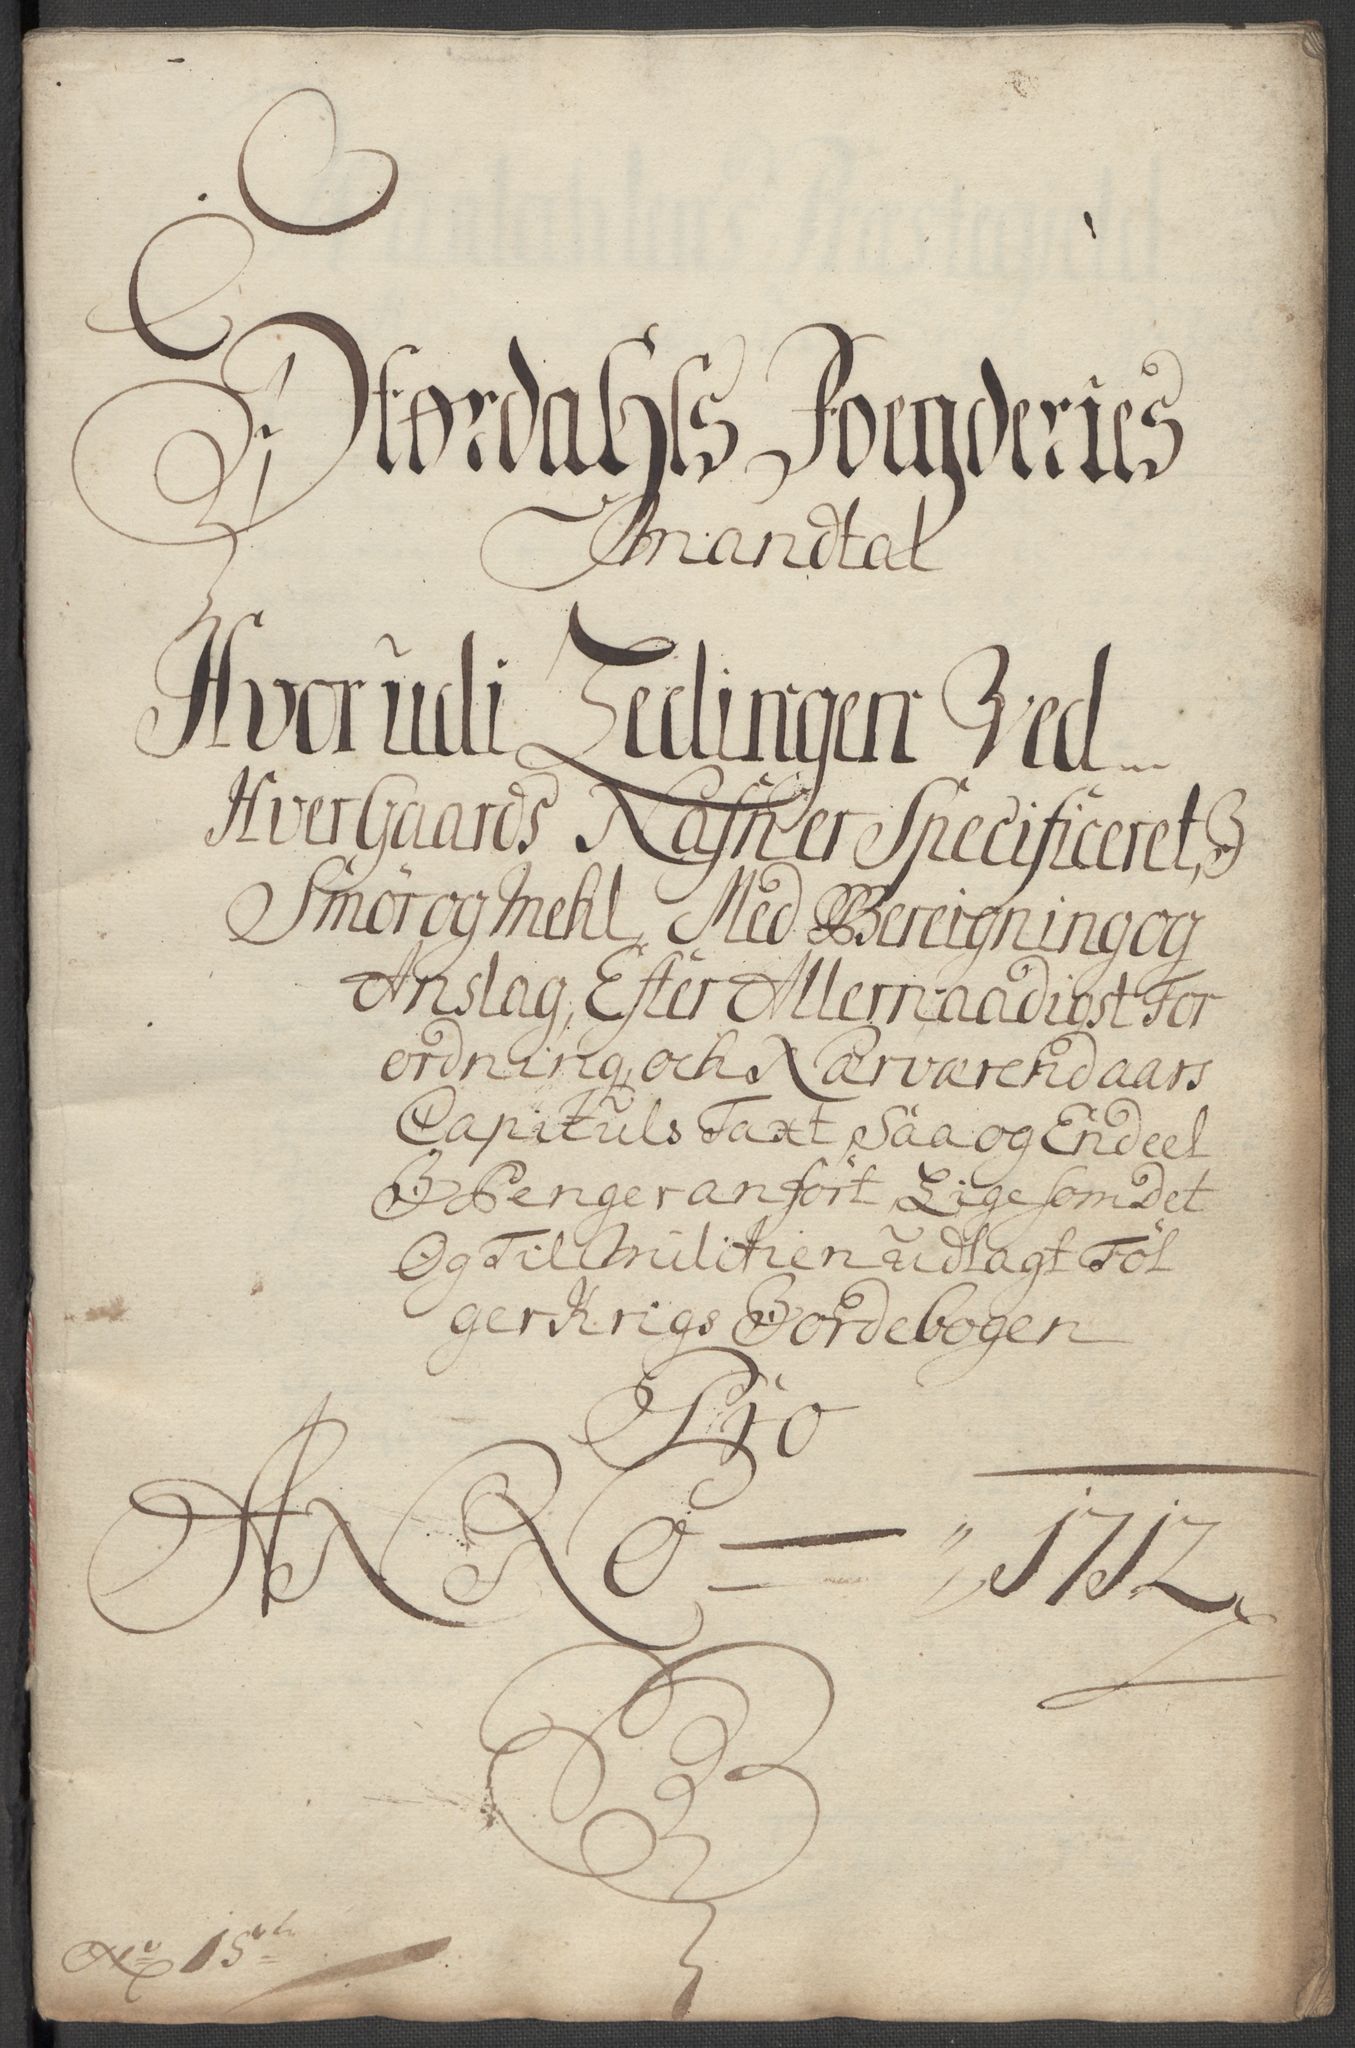 Støordahls Foegderies
Mandtal
Hvorüdi Ledingen Ved
Hver Gaards Nafn er Specificeret, I
Smör og Mehl, Med Bereigning og
Anslag, Efter Allernaadigst For
ordning, och Nærværend aars
Capitüls Taxt, Saa og Endeel
I Penger anfört, Lige som det
Og Til Militien üdlagt Föl
ger Krigs Jordebogen
Pro
ANNO 1712
No 15